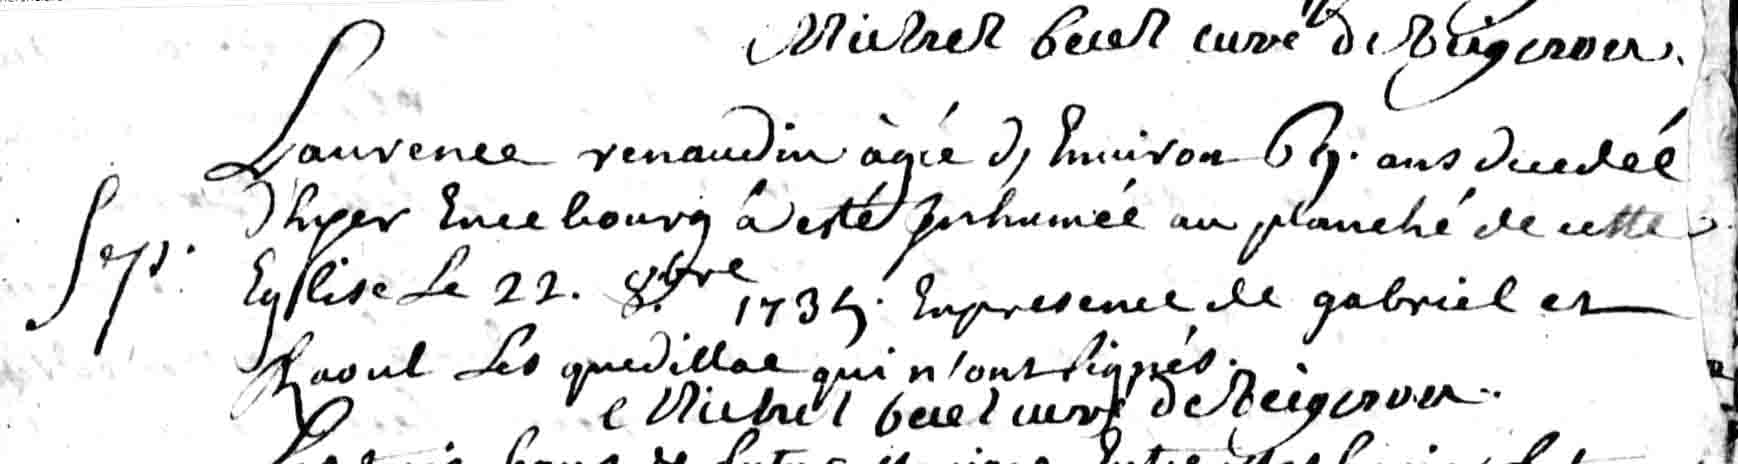 Michel becel curé de Treigerver.
Laurence renaudin àgée d, Environ 65. ans decedéé
D'hyer Ence bourg à esté Inhumée au planché de cette
Sep. Eglise Le 22. 8.bre 1735. Enpresence de gabriel et
Raoul Les quedillac qui n'ont signés.
Michel becel curé de